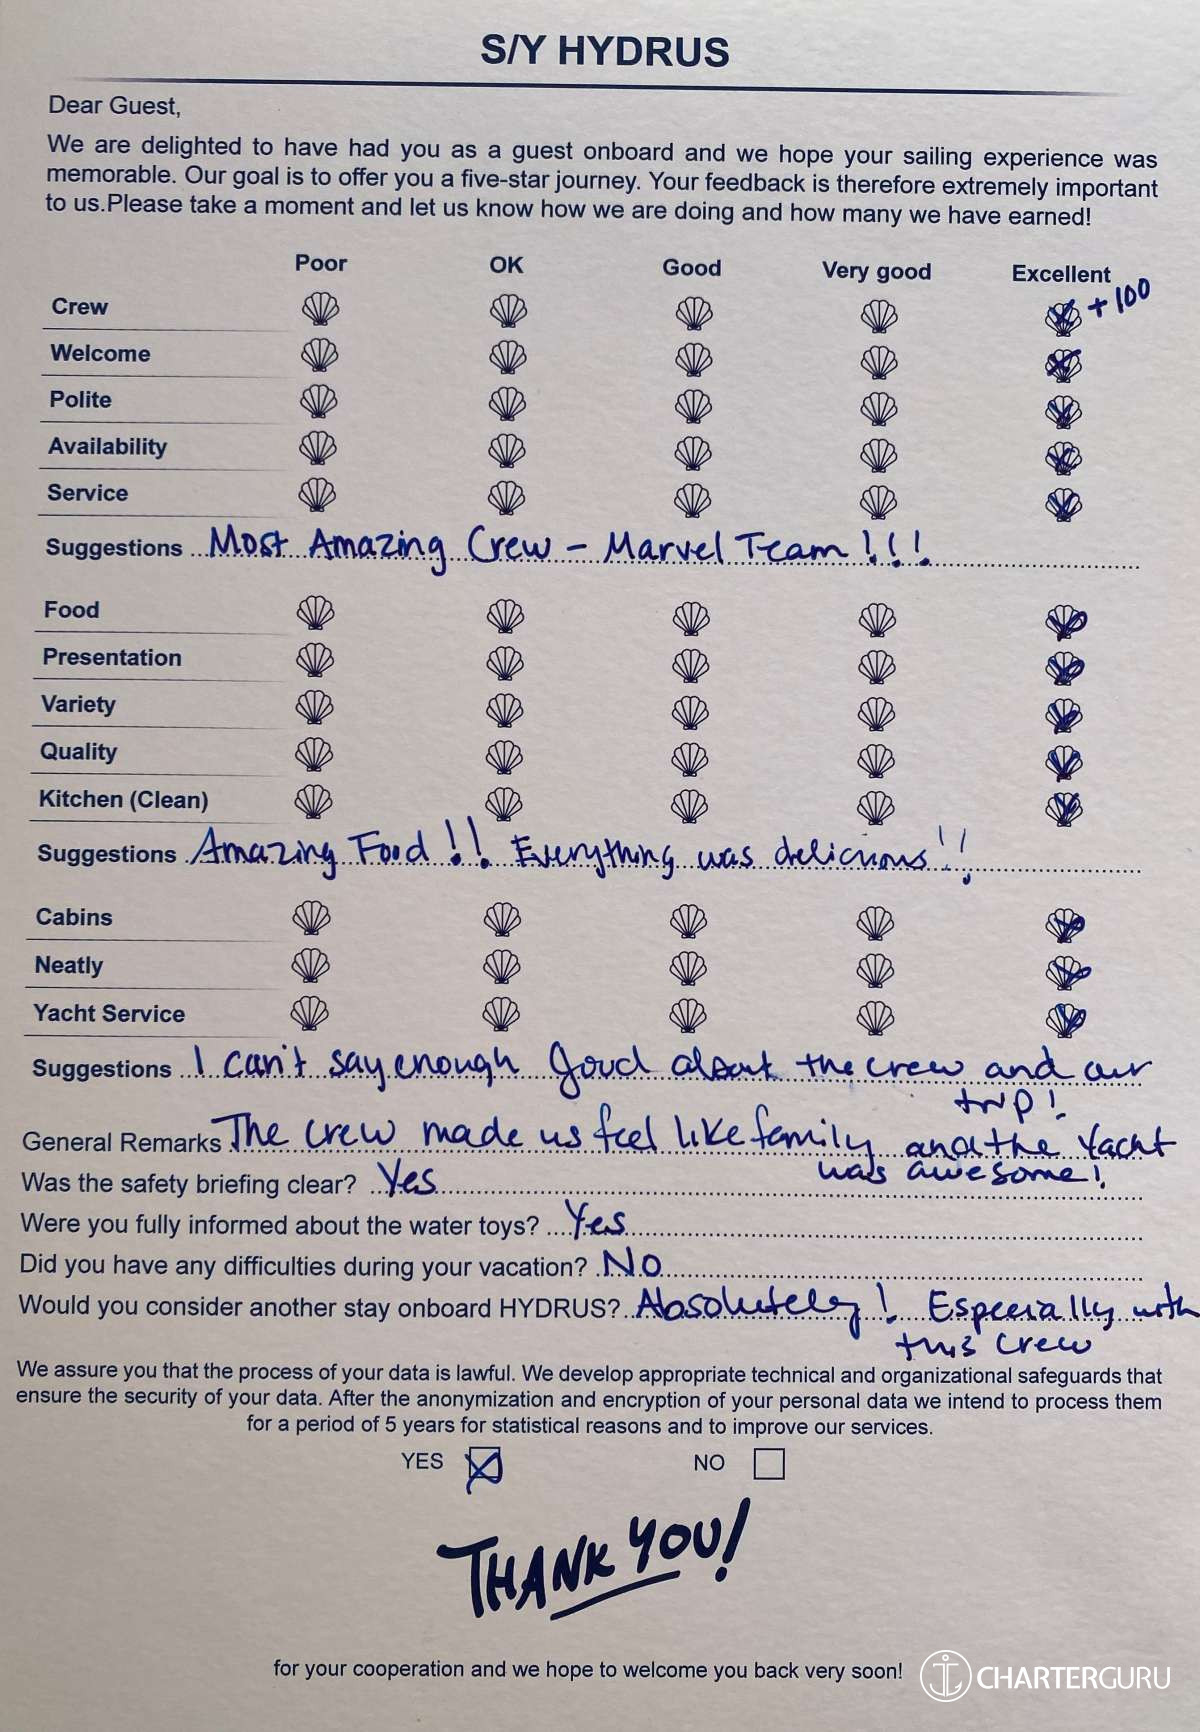 S/Y HYDRUS
Dear Guest,
We are delighted to have had you as a guest onboard and we hope your sailing experience was
memorable. Our goal is to offer you a five-star journey. Your feedback is therefore extremely important
to us.Please take a moment and let us know how we are doing and how many we have earned!
Poor OK Good Very good Excellent
Crew + 100
Welcome
Polite
Availability
Service
Suggestions Most Amazing Crew - Marvel Team !!!
Food
Presentation
Variety
Quality
Kitchen (Clean)
Suggestions Amazing Food!! Everything was delicious!!
Cabins
Neatly
Yacht Service
Suggestions I can't say enough good about the crew and our
trip!
General Remarks The crew made us feel like family and the Yacht
was awesome!
Was the safety briefing clear? Yes
Were you fully informed about the water toys? Yes
Did you have any difficulties during your vacation? No
Would you consider another stay onboard HYDRUS? Absolutely! Especially with
this crew
We assure you that the process of your data is lawful. We develop appropriate technical and organizational safeguards that
ensure the security of your data. After the anonymization and encryption of your personal data we intend to process them
for a period of 5 years for statistical reasons and to improve our services.
YES NO
THANK YOU!
for your cooperation and we hope to welcome you back very soon!
CHARTERGURU